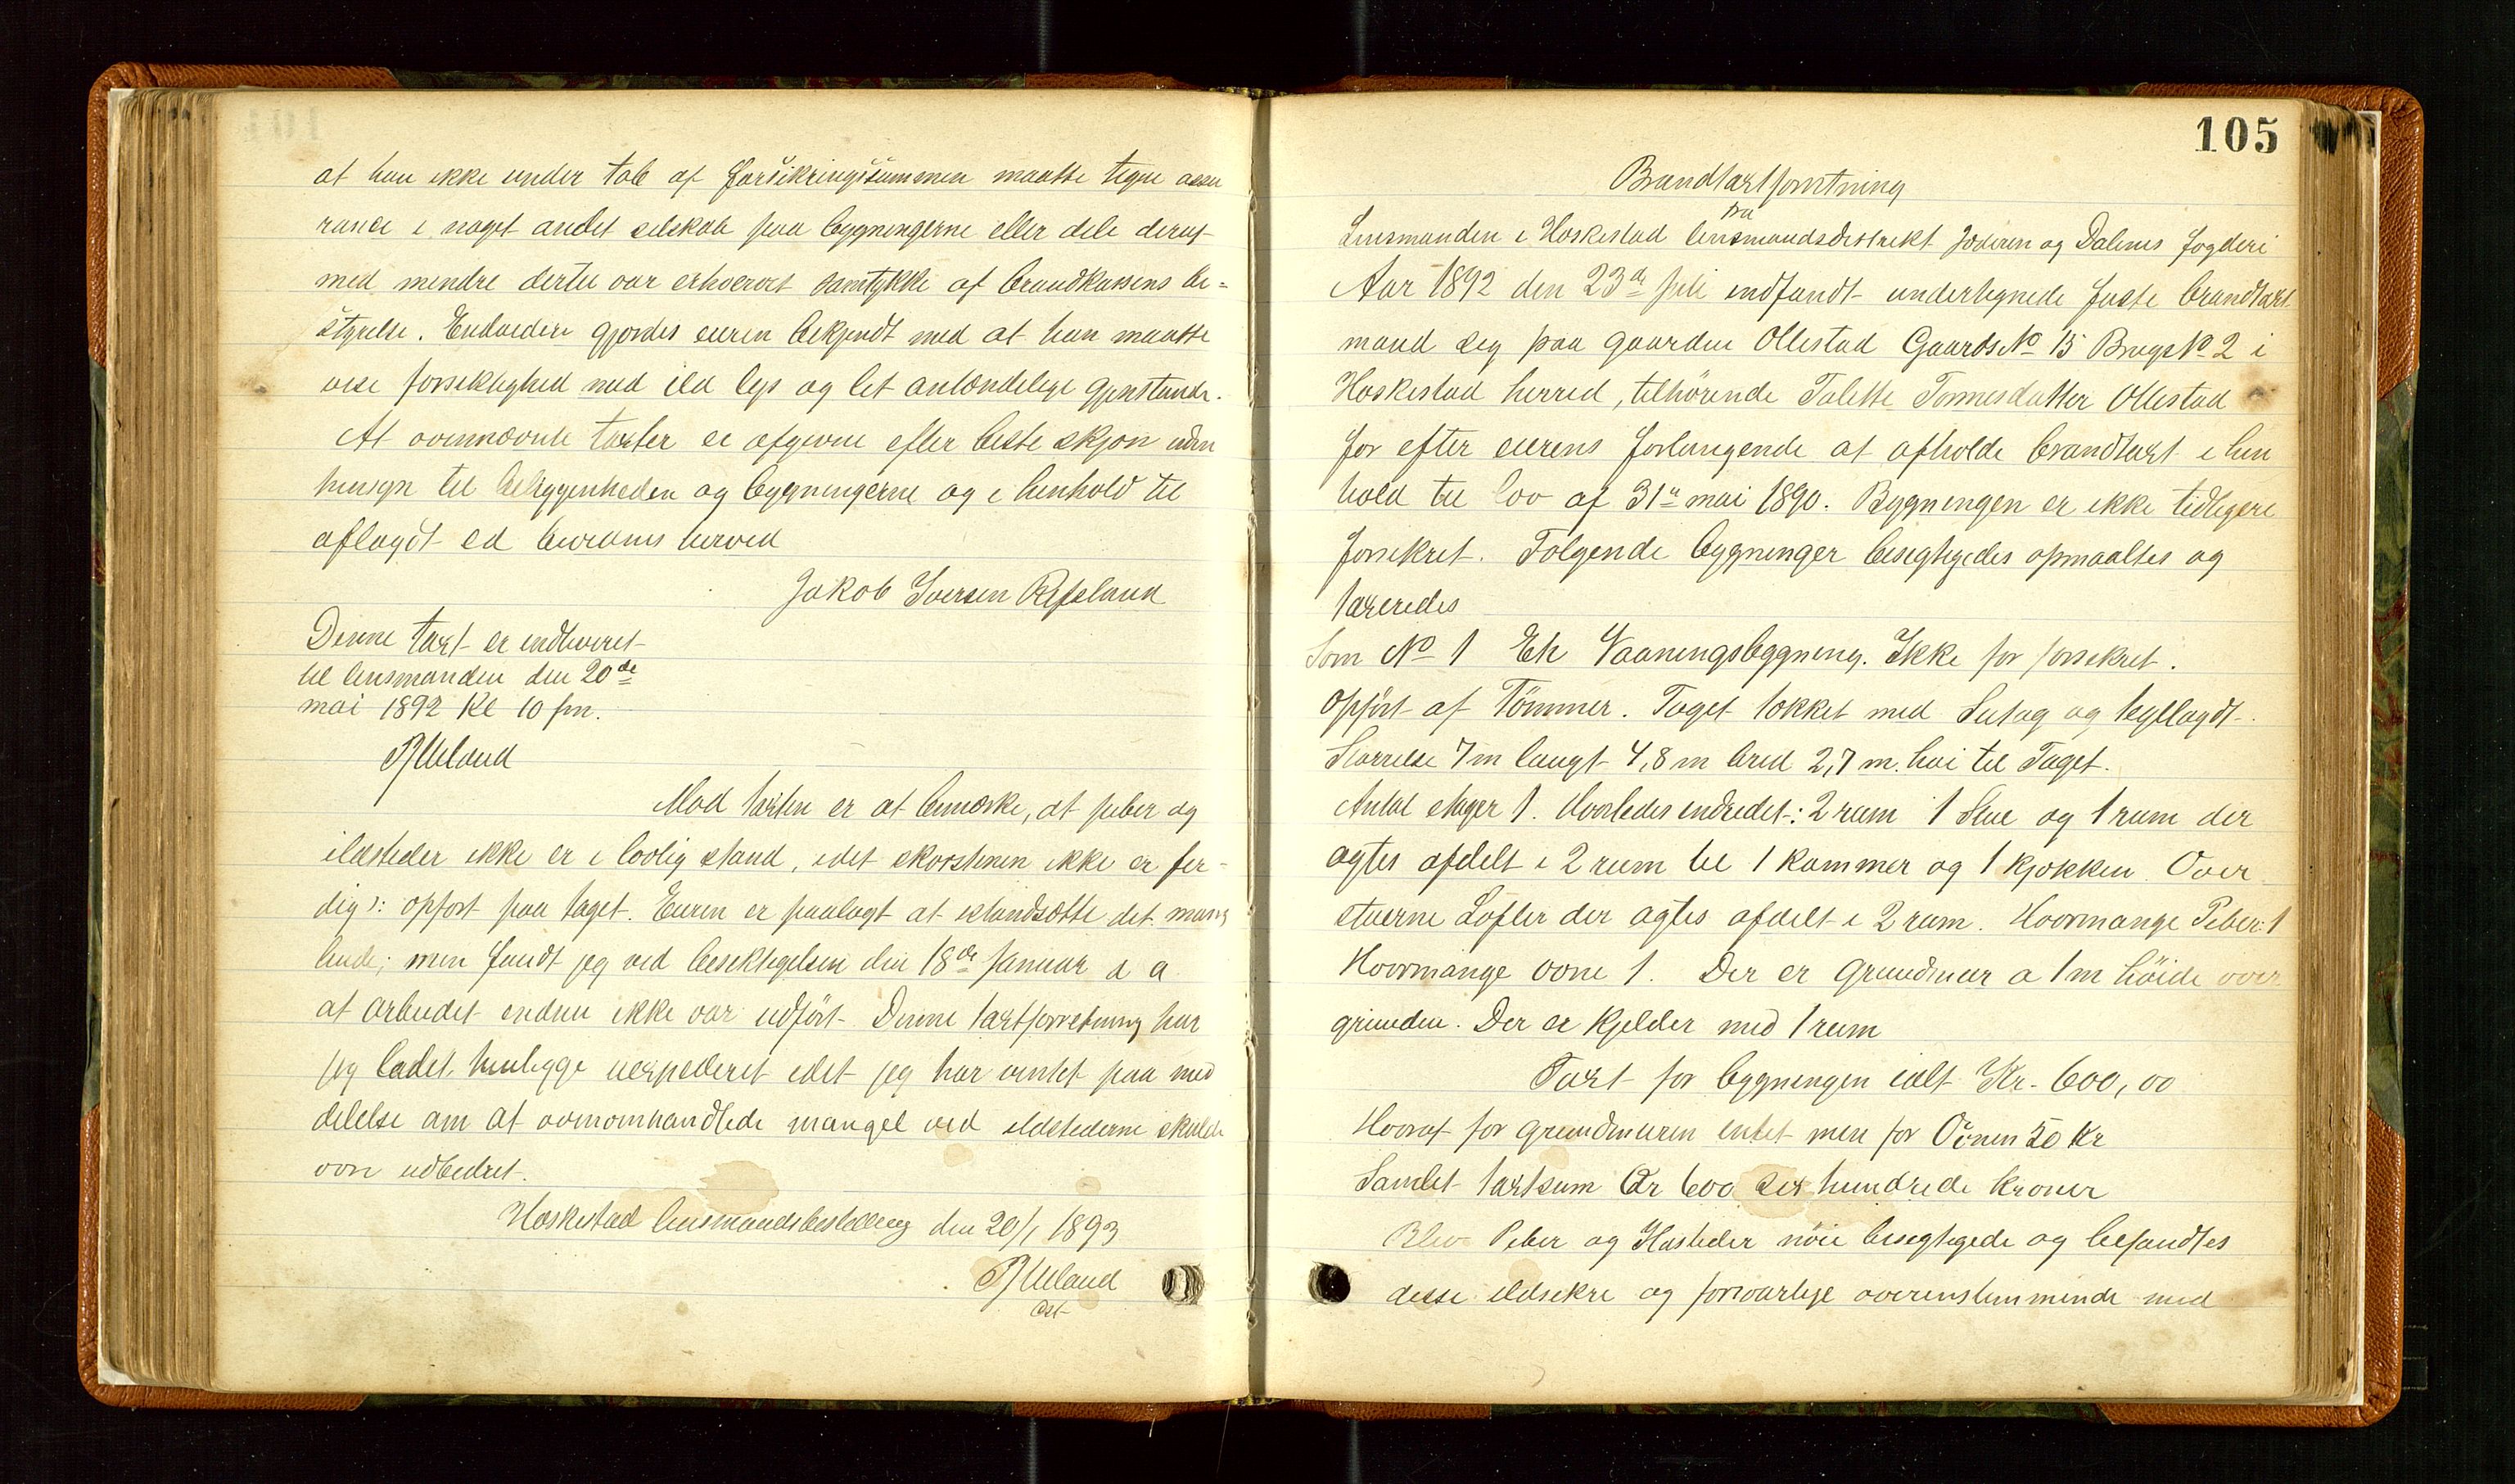 at han ikke under tab af forsikringssummen maatte tegne assu
rance i noget andet selskab paa bygningerne eller dele deraf
med mindre dertil var erhvervet samtykke af brandkassens be=
styrelse. Endvidere gjordes eieren bekjendt med at han maatte
vise forsiktighed med ild lys og let antændelige gjenstande.
At ovennævnte takster er afgivne efter beste skjøn uden
hensyn til beliggenheden og bygningerne og i henhold til
aflagdt ed bevidnes herved
Jakob Iversen Refsland
Denne takst er indleveret
til lensmanden den 20de
mai 1892 Kl 10 fm.
Mod taksten er at bemærke, at piber og
ildsteder ikke er i lovlig stand, idet skorstenen ikke er fer-
dig ɔ: opført paa taget. Eieren er paalagt at istandsætte det mang
lende; men fandt jeg ved besiktigelsen den 18de Januar d a
at arbeidet endnu ikke var udført. Denne takstforretning har
jeg ladet henligge uexpederet idet jeg har ventet paa med
delelse om at ovenomhandlede mangel ved ildstederne skulde
være udbedret.
Heskestad lensmandsbestilling den 20/1 1893
105
Brandtakstforretning
fra
Lensmanden i Heskestad lensmandsdistrikt Jæderen og Dalernes fogderi
Aar 1892 den 23de juli indfandt undertegnede faste brandtakst
mand sig paa gaarden Ollestad Gaards No 15 Brugs No 2 i
Heskestad herred, tilhørende Talette Tønnesdatter Ollestad
for efter eierens forlangende at afholde brandtakst i hen
hold til lov af 31te mai 1890. Bygningen er ikke tidligere
forsikret. Følgende bygninger besigtigedes opmaaltes og
taxeredes
Som No 1 Et Vaaningsbygning. Ikke før forsikret.
opført af Tømmer. Taget tækket med Sutag og tegllagdt.
Størrelse 7 m langt 4,8 m bred 2,7 m. høi til Taget.
Antal etager 1. Hvorledes indredet: 2 rum 1 Stue og 1 rum der
agtes afdelt i 2 rum til 1 kammer og 1 kjøkken. Over
stuerne Lofter der agtes afdelt i 2 rum. Hvormange Piber: 1
Hvormange ovne 1. Der er grundmur a 1 m høide over
grunden. Der er kjelder med 1 rum
Takst for bygningen ialt Kr. 600,00
Hvoraf for grundmuren intet men for Ovnen 50 Kr
Samlet takstsum Kr 600 sex hundrede kroner
Blev Piber og Ildsteder nøie besigtigede og befandtes
disse ildsikre og forsvarlige overenstemmende med